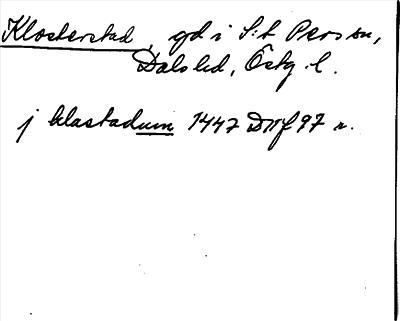 Klosterstad, gd i S:t Pers sn,
Dals hd, Östg l.
j klastadum 1447 DMf 97 r.